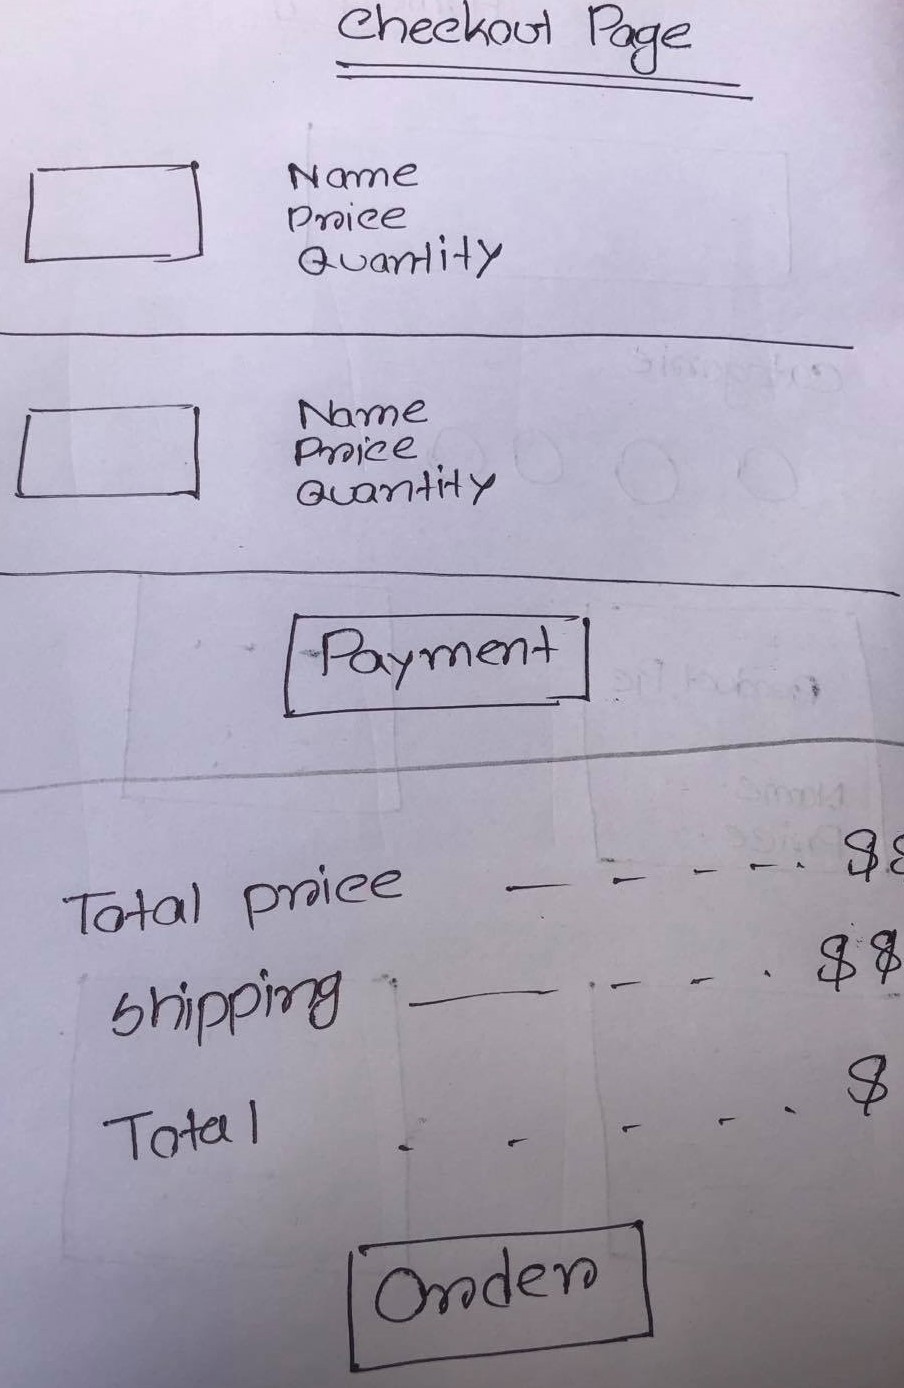 Checkout Page
Name
Price
Quantity
Name
Price
Quantity
Payment
Total price — - - - . $$
Shipping — . - - . $$
Total . - - - . $
Order